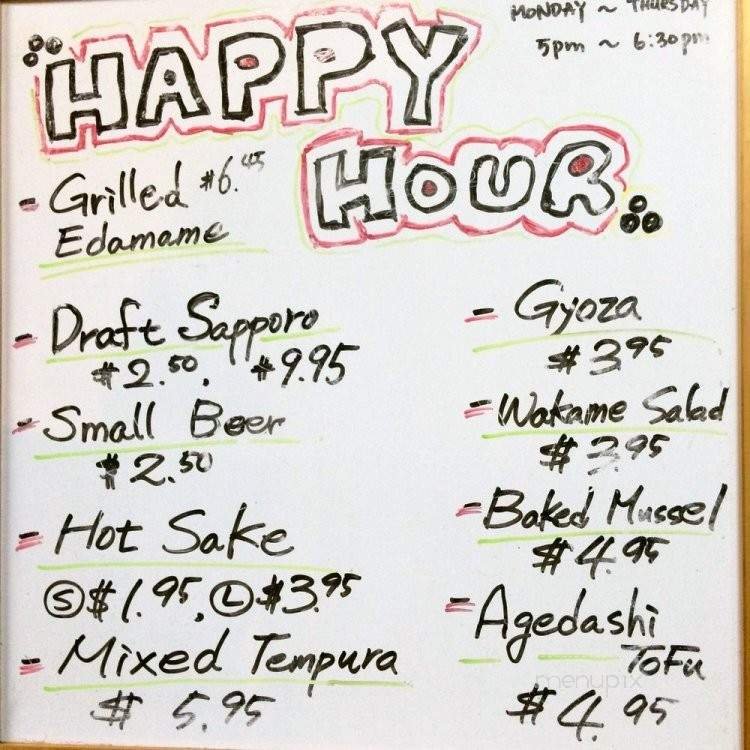 MONDAY ~ THURSDAY
5pm ~ 6:30pm
HAPPY
HOUR
- Grilled $6.45
Edamame
- Draft Sapporo
$2.50, $9.95
- Small Beer
$2.50
- Hot Sake
Ⓢ$1.95, Ⓛ$3.95
- Mixed Tempura
$5.95
- Gyoza
$3.95
- Wakame Salad
$3.95
- Baked Mussel
$4.95
- Agedashi
ToFu
$4.95
menupix